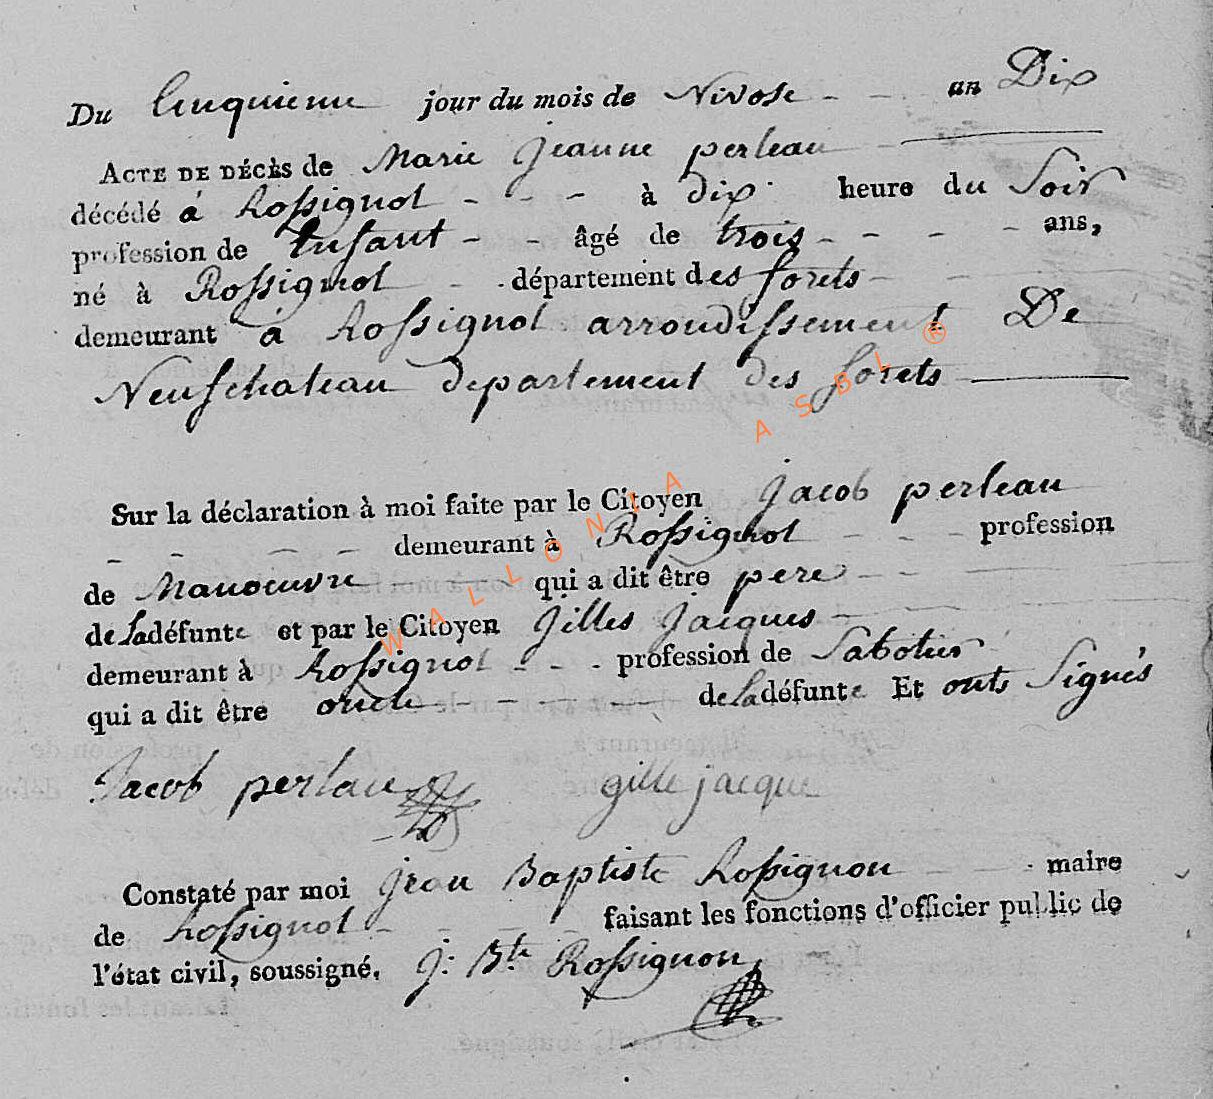 Du Cinquieme jour du mois de Nivose - - an Dix
ACTE DE DÉCÈS de Marie Jeanne perleau
décédé á Rossignol - - - à dix heure du Soir
profession de Enfant - - âgé de trois - - - - ans,
né à Rossignol - département des forets - -
demeurant à Rossignol arrondissement De
Neufchateau departement des forets
Sur la déclaration à moi faite par le Citoyen Jacob perleau
- - - - demeurant à Rossignol - - - profession
de Manoeuvre qui a dit être pere - -
de la défunte et par le Citoyen Gilles Jacques -
demeurant à Rossignol - - - profession de Sabotier
qui a dit être oncle - - - - - de la défunte Et onts Signés
Jacob perlau gille jacque
Constaté par moi jean Baptiste Rossignon - maire
de Rossignol - - - - faisant les fonctions d'officier public de
l'état civil, soussigné. J: Bte Rossignon
WALLONIA ASBL ®